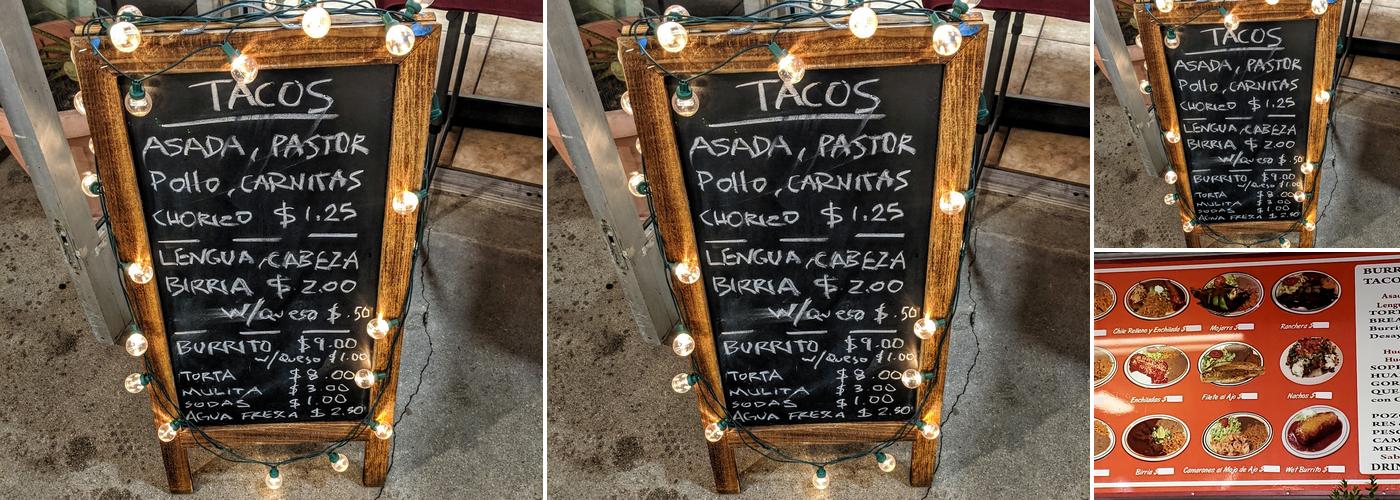 TACOS
ASADA, PASTOR
Pollo, CARNITAS
CHORIZO $1.25
LENGUA, CABEZA
BIRRIA $2.00
W/Queso $.50
BURRITO $9.00
w/Queso $1.00
TORTA $8.00
MULITA $3.00
SODAS $1.00
AGUA FREZA $2.50
TACOS
ASADA, PASTOR
Pollo, CARNITAS
CHORIZO $1.25
LENGUA, CABEZA
BIRRIA $2.00
W/Queso $.50
BURRITO $9.00
w/Queso $1.00
TORTA $8.00
MULITA $3.00
SODAS $1.00
AGUA FREZA $2.50
TACOS
ASADA, PASTOR
Pollo, CARNITAS
CHORIZO $1.25
LENGUA, CABEZA
BIRRIA $2.00
W/Queso $.50
BURRITO $9.00
w/Queso $1.00
TORTA $8.00
MULITA $3.00
SODAS $1.00
AGUA FREZA $2.50
Chile Relleno y Enchilada $
Mojarra $
Ranchera $
Enchiladas $
Filete al Ajo $
Nachos $
Birria $
Camarones al Mojo de Ajo $
Wet Burrito $
BURR
TACO
Asad
Lengu
TORT
BREA
Burri
Desay
Hue
Hu
SOPE
HUA
GOR
QUE
con C
POZ
RES
PESC
CAM
MEN
Sab
DRIN